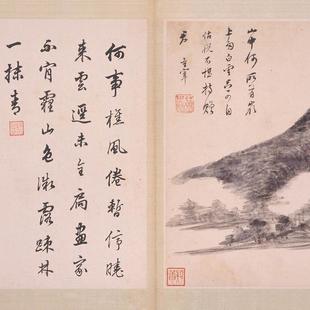 山中何所有嶺
上多白雲只可自
怡悅不堪持贈
君 玄宰
何事樵風倦暫停曉
來雲未全扃畫家
不肯霾山色微露疎林
一抹青